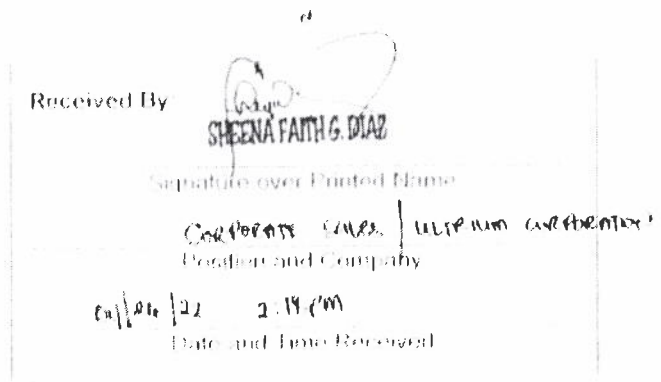 Received By
SHEENA FAITH G. DIAZ
Signature over Printed Name
CORPORATE SALES | ULTRIUM CORPORATION
Position and Company
22 2:14 PM
Date and Time Received